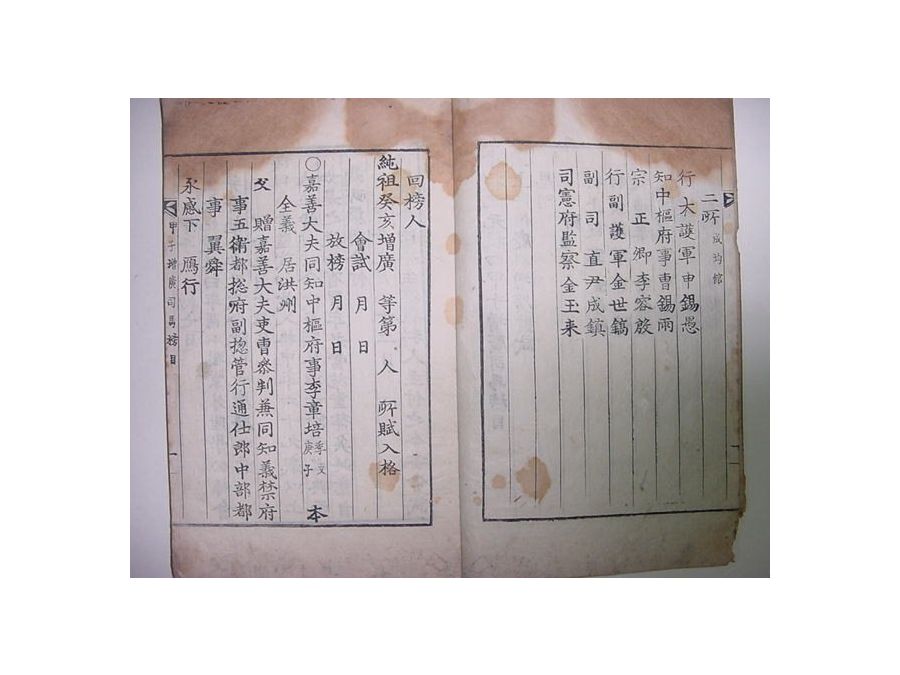 二所 成均館
行大護軍申錫愚
知中樞府事曺錫雨
宗正卿李容殷
行副護軍金世鎬
副司直尹成鎮
司憲府監察金玉来
回榜人
純祖癸亥增廣 等第 人 所賦入格
會試 月 日
放榜 月 日
○嘉善大夫同知中樞府事李章培 季文 庚子 本
全義 居洪州
父 贈嘉善大夫吏曹叅判兼同知義禁府
事五衛都摠府副摠管行通仕郎中部都
事 翼舜
永感下 鴈行
甲子增廣司馬榜目
一